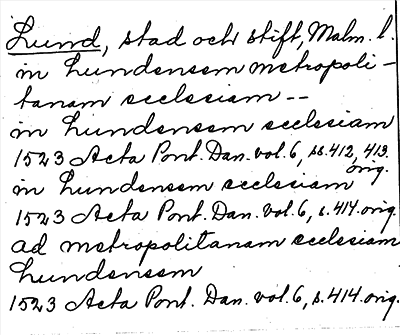 Lund, stad och stift, Malm. l.
in Lundensem metropoli-
tanam ecclesiam --
in Lundensem ecclesiam
1523 Acta Pont. Dan. vol. 6, ss. 412, 413.
orig.
in Lundensem ecclesiam
1523 Acta Pont. Dan. vol. 6, s. 414 orig.
ad metropolitanam ecclesiam
Lundensem
1523 Acta Pont. Dan. vol. 6, s. 414 orig.